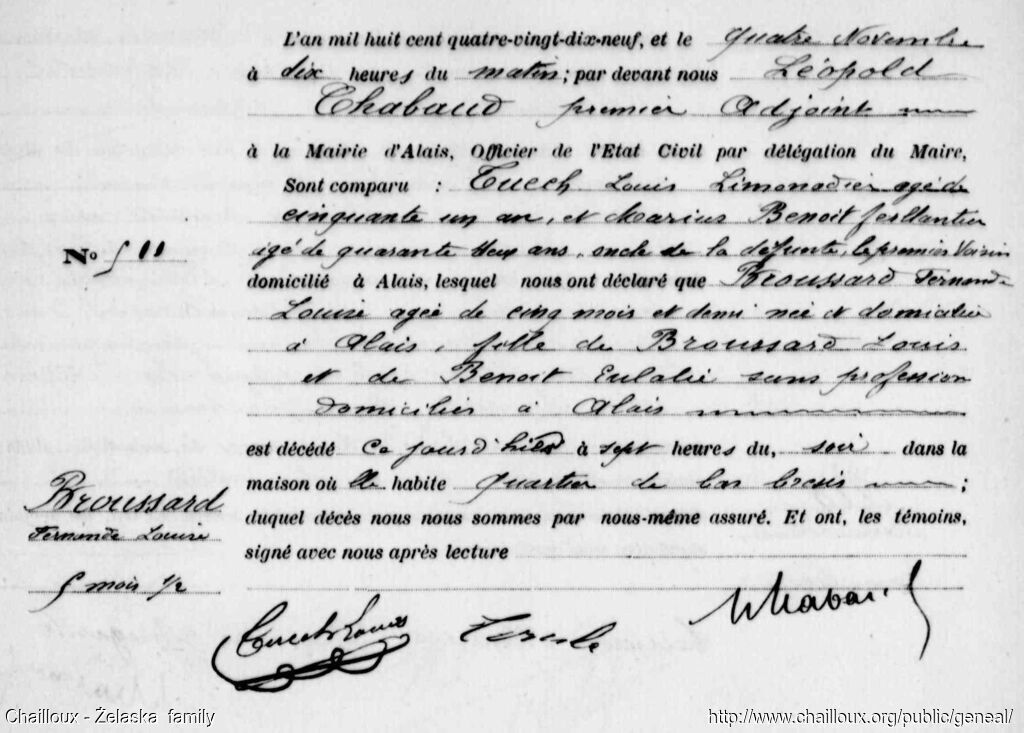 L'an mil huit cent quatre-vingt-dix-neuf, et le quatre Novembre
à dix heures du matin; par devant nous Léopold
Chabaud premier Adjoint
à la Mairie d'Alais, Officier de l'Etat Civil par délégation du Maire,
Sont comparu : Tuech Louis Limonadier agé de
cinquante un an, et Marius Benoit ferblantier
agé de quarante deux ans, oncle de la defunte, le premier Voisin
N° 511
domicilié à Alais, lesquel nous ont déclaré que Broussard Fernande
Louise agée de cinq mois et demi née et domiciliée
à Alais, fille de Broussard Louis
et de Benoit Eulalie sans profession
domiciliés à Alais
est décédé ce jour d'hier à sept heures du, soir dans la
maison où elle habite quartier de
duquel décès nous nous sommes par nous-même assuré. Et ont, les témoins,
signé avec nous après lecture
Broussard
Fernande Louise
5 mois 1/2
Tuech Louis
Chabaud
Chailloux - Żelaska family
http://www.chailloux.org/public/geneal/